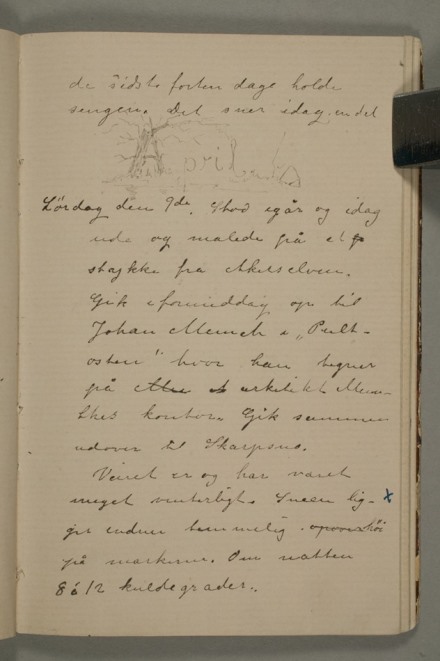 de sidste forten dage holde
sengen. Det sner idag endel
April
Lördag den 9de. Stod igår og idag
ude og malede på et
stykke fra Akerselven.
Gik i formiddag op til
Johan Munch i „Pult-
osten" hvor han tegner
på arkitekt
kontor. Gik sammen
udover til Skarpsno.
Veiret er og har været
meget vinterligt. Sneen lig-
ger endnu temmelig höi
på markerne. Om natten
8 à 12 kuldegrader.